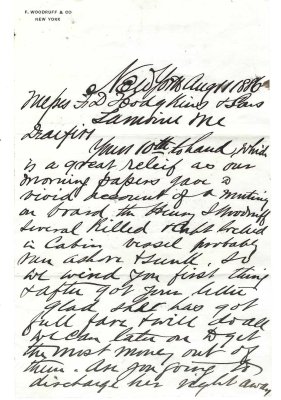 F. WOODRUFF & CO
NEW YORK
New York Aug 11 1886
Messrs F D Hodgkins & Sons
Lamoine Me
Dear Sirs
Yours 10th to hand, which
is a great relief as our
morning papers gave a
vivid account of a mutiny
on board the Henry Woodruff
several killed & Capt locked
in Cabin vessel probably
run ashore & sunk. So
we wired you first thing
& after got your letter
glad she has got
full fare & will do all
we can later on to get
the most money out of
them. Are you going to
discharge her right away